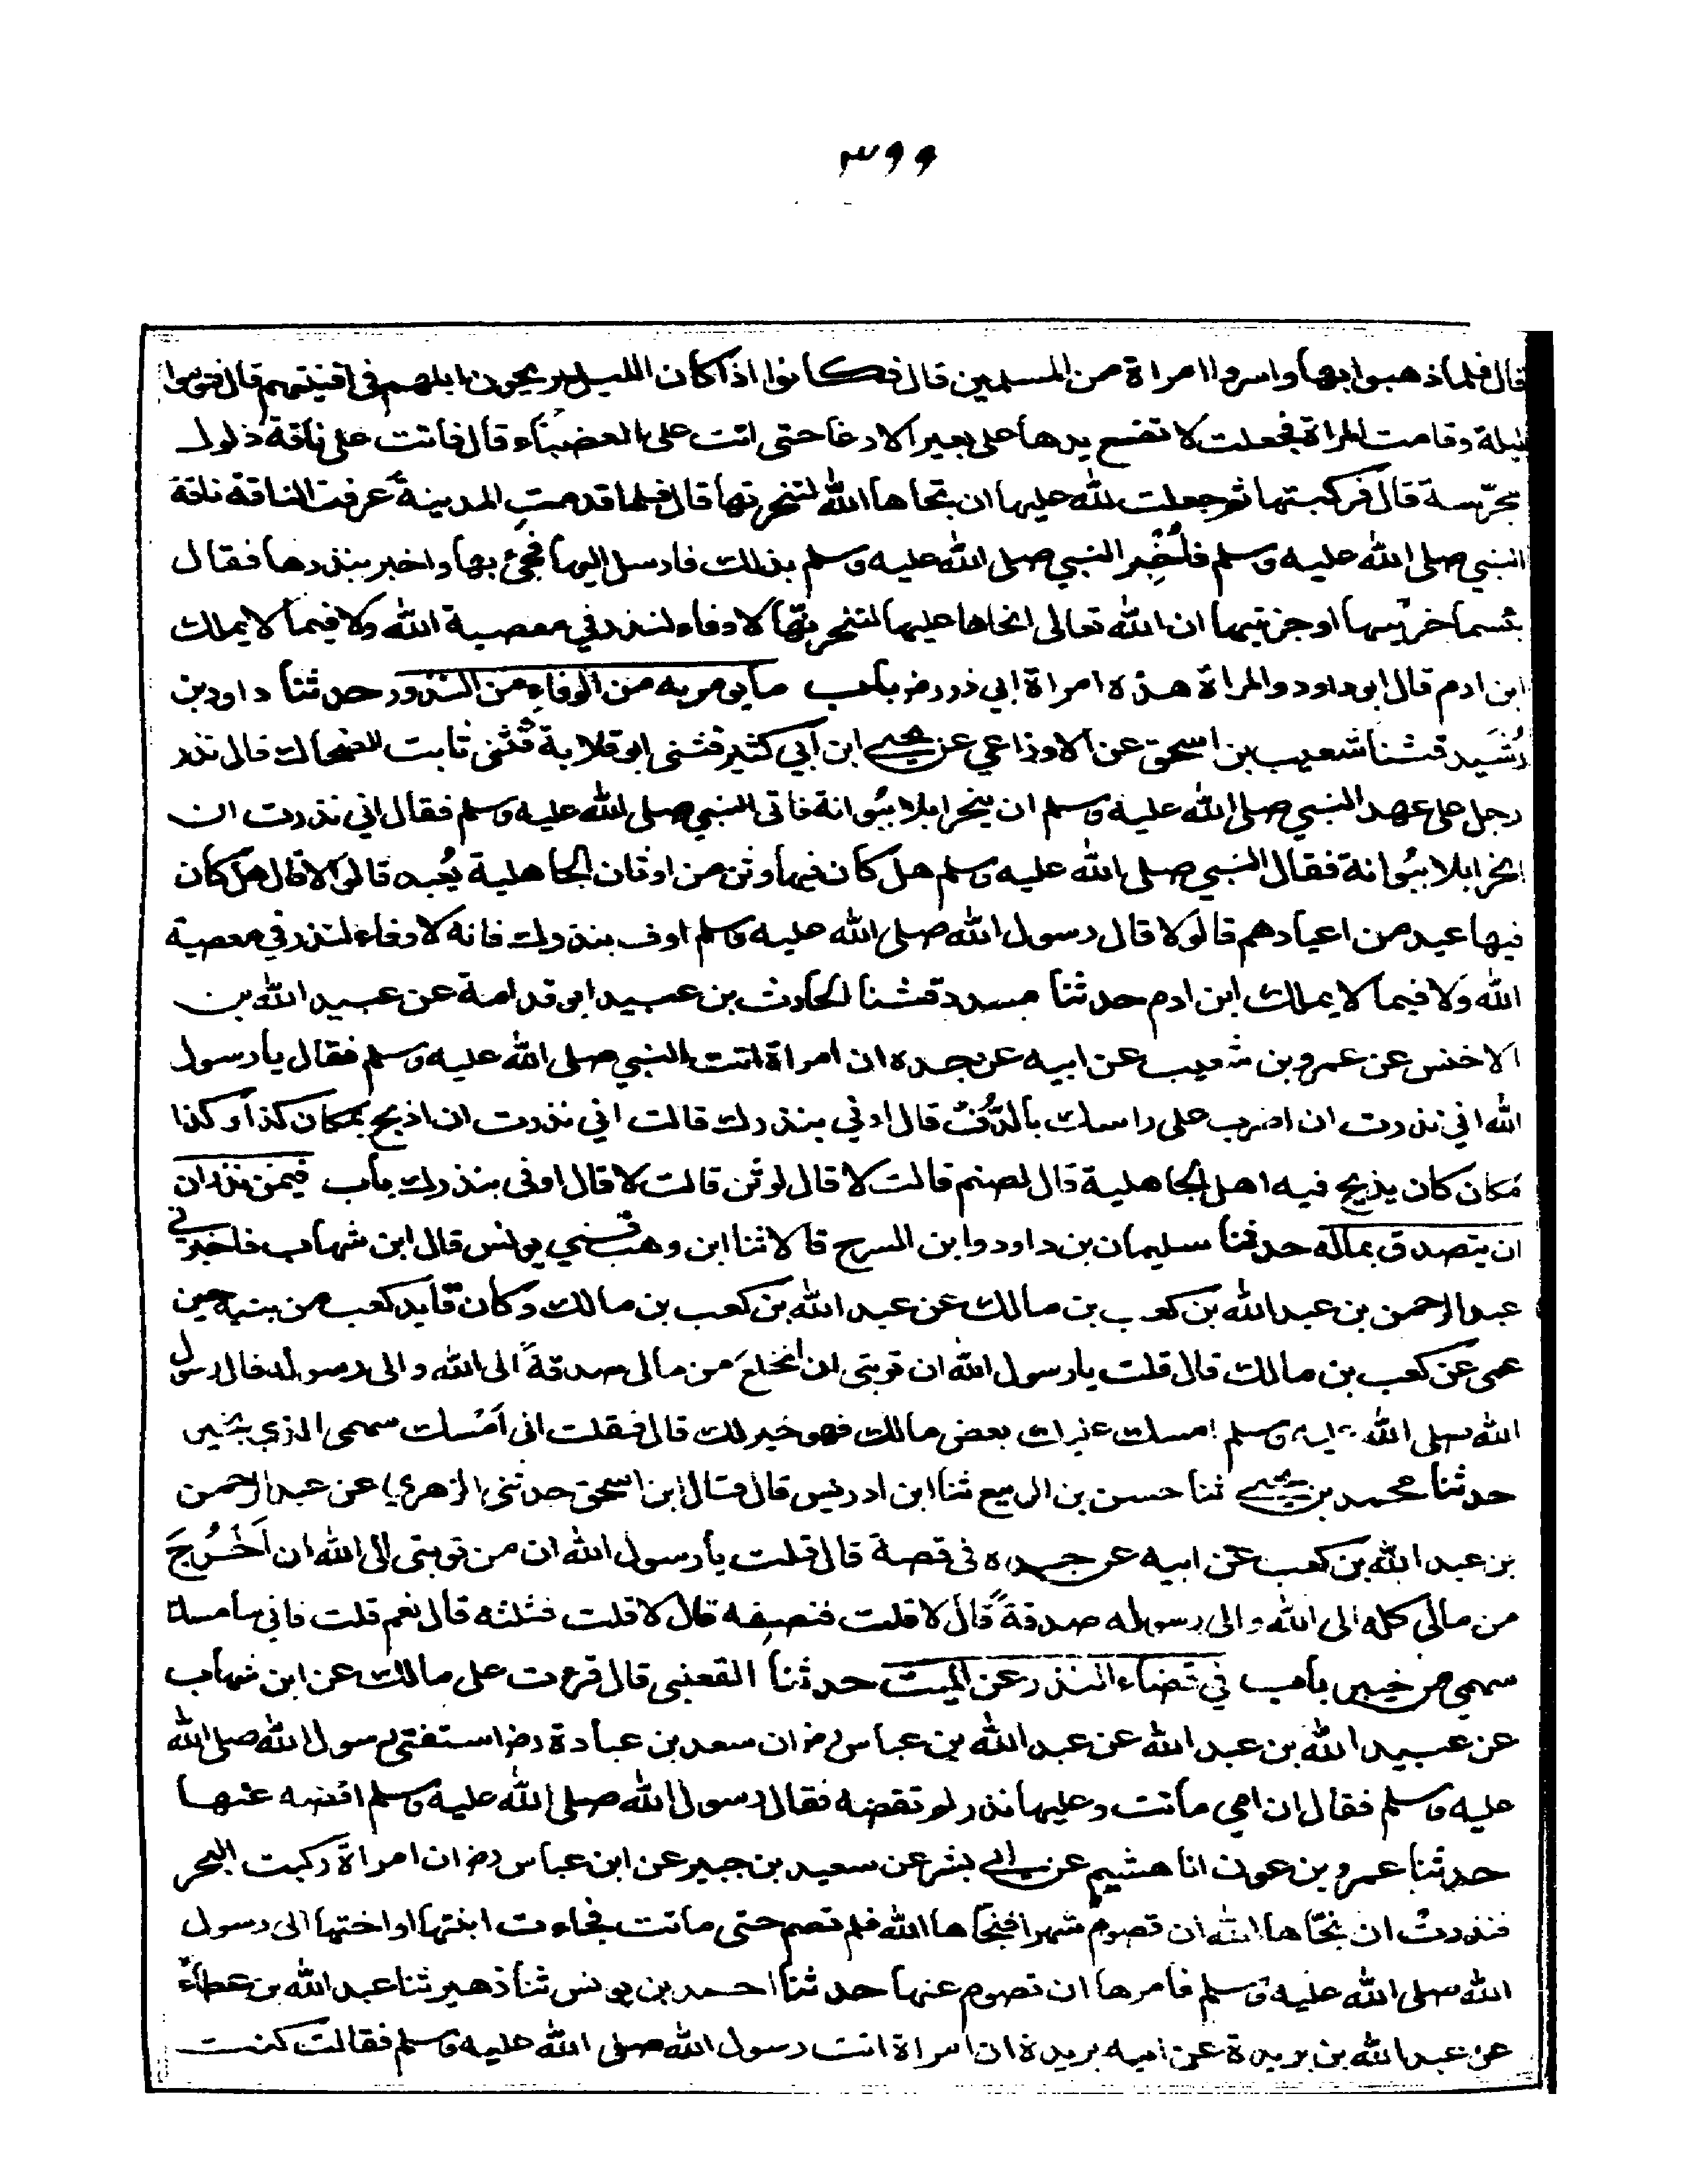 ٣٩٩
قال فلما ذهبوا بها واسروا امراة من المسلمين قال فكانوا اذا كان الليل يريحون ابلهم في افنيتهم قال فنوموا
ليلة وقامت المراة فجعلت لا تضع يدها على بعير الا رغا حتى اتت على العضباء قال فاتت على ناقة ذلول
مجرّسة قال فركبتها ثم جعلت لله عليها ان نجاها الله لتنحرنها قال فلما قدمتِ المدينةَ عرفت الناقة ناقة
النبي صلى الله عليه وسلم فاُخْبِر النبي صلى الله عليه وسلم بذلك فارسل اليها فجئ بها واخبر بنذرها فقال
بئسما جزيتيها او جزتيها ان الله تعالى انجاها عليها لتنحرنّها لا وفاء لنذر في معصية الله ولا فيما لا يملك
ابن ادم قال ابو داود والمراة هذه امراة ابي ذر رض باب ما يومر به من الوفاء من النذور حدثنا داود بن
رُشَيد قثنا شعيب بن اسحق عن الاوزاعي عن يحيى ابن ابي كثير قثنى ابو قلابة قثنى ثابت الضحاك قال نذر
رجل على عهد النبي صلى الله عليه وسلم ان ينحر ابلا ببُوانة فاتى النبي صلى الله عليه وسلم فقال اني نذرت ان
انحر ابلا ببُوانة فقال النبي صلى الله عليه وسلم هل كان فيها وثن من اوثان الجاهلية يُعبد قالوا لا قال هل كان
فيها عيد من اعيادهم قالو لا قال رسول الله صلى الله عليه وسلم اوف بنذرك فانه لا وفاء لنذر في معصية
الله ولا فيما لا يملك ابن ادم حدثنا مسدد قثنا الحارث بن عبيد ابو قدامة عن عبيد الله بن
الاخنس عن عمرو بن شعيب عن ابيه عن جده ان امراة اتت النبي صلى الله عليه وسلم فقال يا رسول
الله اني نذرت ان اضرب على راسك بالدُّفّ قال اوفي بنذرك قالت اني نذرت ان اذبح بمكان كذا وكذا
مكان كان يذبح فيه اهل الجاهلية قال لصنم قالت لا قال لوثن قالت لا قال اوفى بنذرك باب فيمن نذر ان
ان يتصدق بماله حدثنا سليمان بن داود وابن السرح قالا ثنا ابن وهب قثني يونس قال ابن شهاب فاخبرني
عبد الرحمن بن عبد الله بن كعب بن مالك عن عبد الله بن كعب بن مالك وكان قايد كعب من بنيه حين
عمى عن كعب بن مالك قال قلت يا رسول الله ان توبتى ان انخلعَ من مالى صدقةً الى الله والى رسوله فقال رسول
الله صلى الله عليه وسلم امسك عليك بعض مالك فهو خير لك قال فقلت انى اَمْسك سهمى الذي بخيبر
حدثنا محمد بن يحيى ثنا حسن بن الربيع ثنا ابن ادريس قال قال ابن اسحق حدثنى الزهري عن عبد الرحمن
بن عبد الله بن كعب عن ابيه عن جده في قصة قال قلت يا رسول الله ان من توبتى الى الله ان اَخْرُجَ
من مالي كله الى الله والى رسوله صدقةً قال لا قلت فنصِفه قال لا قلت فثلثه قال نعم قلت فاني سامسك
سهمي من خيبر باب في قضاء النذر عن الميت حدثنا القعنبى قال قرءت على مالك عن ابن شهاب
عن عبيد الله بن عبد الله عن عبد الله بن عباس رض ان سعد بن عبادة رض استفتى رسول الله صلى الله
عليه وسلم فقال ان امي ماتت وعليها نذر لم تقضه فقال رسول الله صلى الله عليه وسلم اقضه عنها
حدثنا عمرو بن عون انا هشيم عن ابي بشر عن سعيد بن جبير عن ابن عباس رض ان امراة ركبت البحر
فنذرت ان نجّاها الله ان تصوم شهرا فنجاها الله فلم تصم حتى ماتت فجاءت ابنتها او اختها الى رسول
الله صلى الله عليه وسلم فامرها ان تصوم عنها حدثنا احمد بن يونس ثنا زهير ثنا عبد الله بن عطاء
عن عبد الله بن بريدة عن ابيه بريدة ان امراة اتت رسول الله صلى الله عليه وسلم فقالت كنت